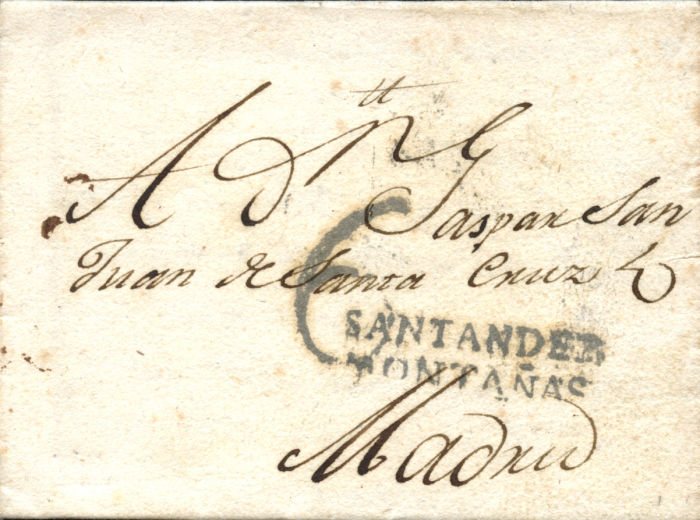 A Dn Gaspar San
Juan de Santa Cruz
6
SANTANDER
MONTAÑAS
Madrid